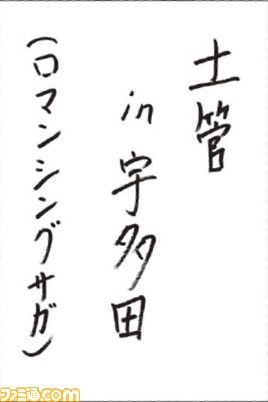 土管
in 宇多田
(ロマンシングサガ)
ファミ通.com